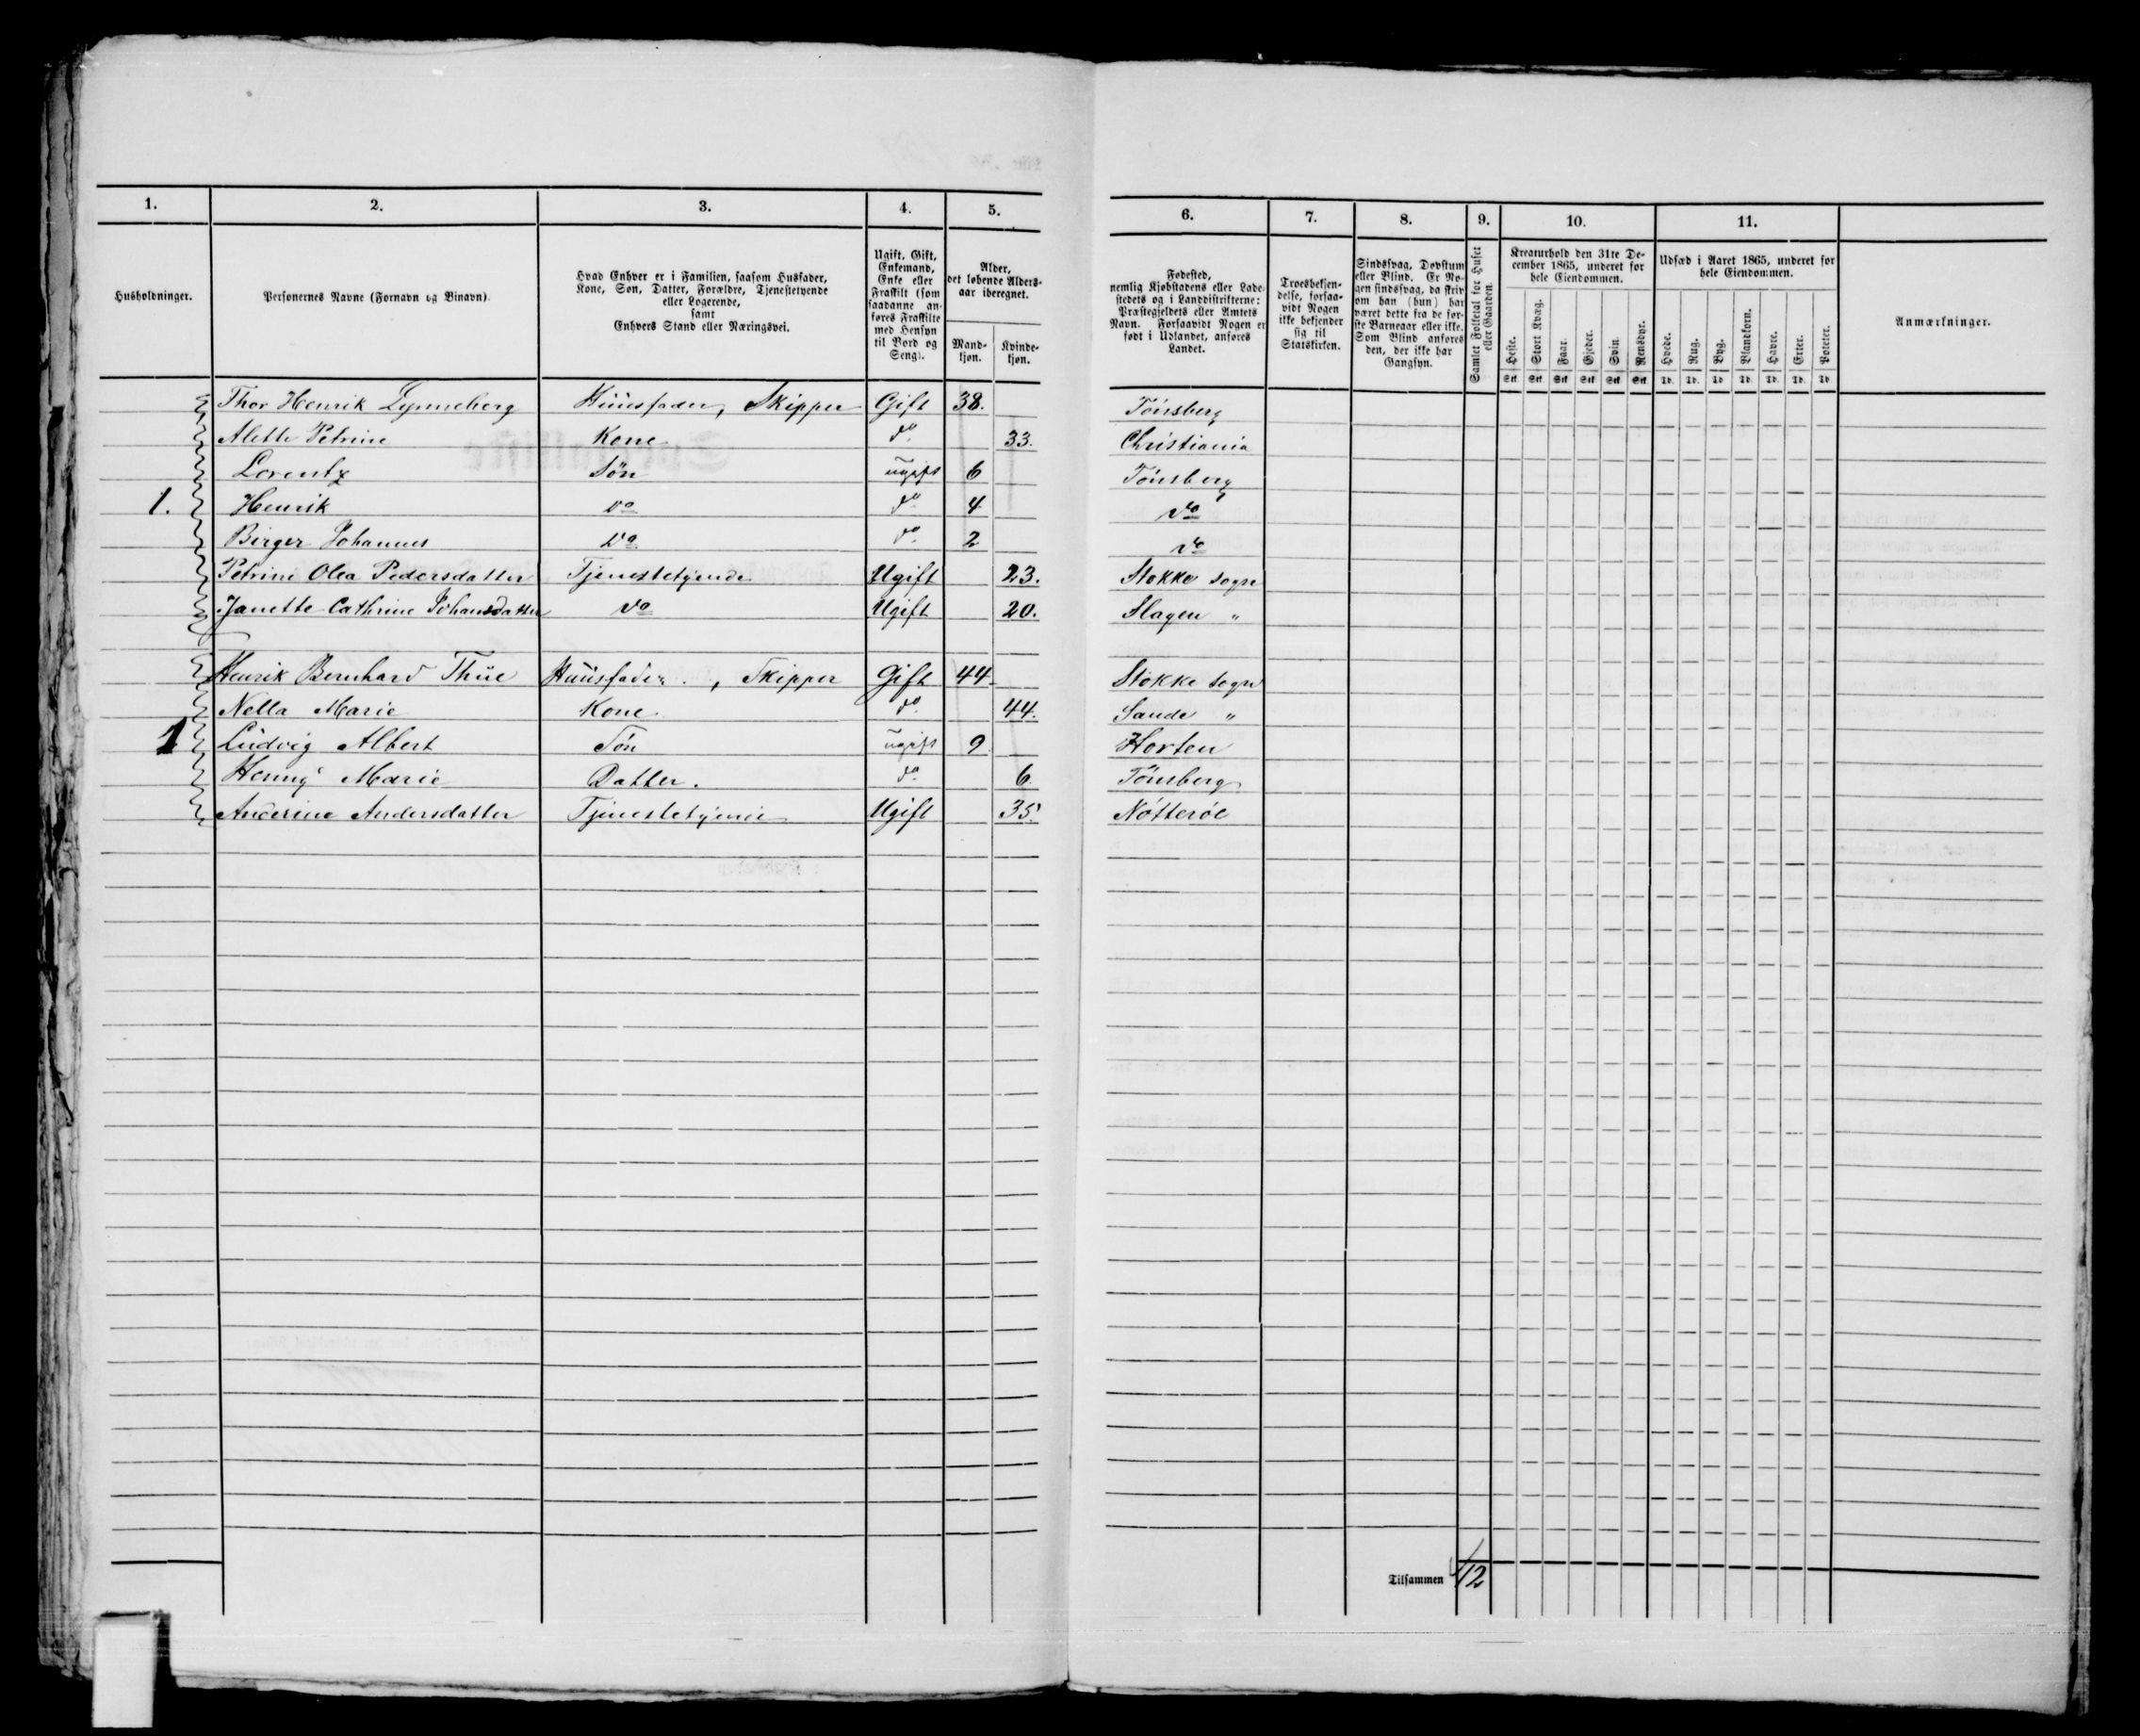 1. 2. 3. 4. 5. 6. 7. 8. 9. 10. 11.
Husholdninger.
Personernes Navne (Fornavn og Binavn).
Hvad Enhver er i Familien, saasom Husfader,
Kone, Søn, Datter, Forældre, Tjenestetyende
eller Logerende,
samt
Enhvers Stand eller Næringsvei.
Ugift, Gift,
Enkemand,
Enke eller
Fraskilt (som
saadanne an-
føres Fraskilte
med Hensyn
til Bord og
Seng).
Alder,
det løbende Alders-
aar iberegnet.
Mand-
kjøn.
Kvinde-
kjøn.
Fødested,
nemlig Kjøbstadens eller Lade-
stedets og i Landdistrikterne:
Præstegjeldets eller Amtets
Navn. Forsaavidt Nogen er
født i Udlandet, anføres
Landet.
Troesbekjen-
delse, forsaa-
vidt Nogen
ikke bekjender
sig til
Statskirken.
Sindssvag, Døvstum
eller Blind. Er No-
gen sindssvag, da skriv
om han (hun) har
været dette fra de før-
ste Barneaar eller ikke.
Som Blind anføres
den, der ikke har
Gangsyn.
Samlet Folketal for Huset
eller Gaarden.
Kreaturhold den 31te De-
cember 1865, underet for
hele Eiendommen.
Heste. Stort Kvæg. Faar. Gjeder. Svin. Rensdyr.
Stk. Stk. Stk. Stk. Stk. Stk.
Udsæd i Aaret 1865, underet for
hele Eiendommen.
Hvede. Rug. Byg. Blandkorn. Havre. Erter. Poteter.
Td. Td. Td. Td. Td. Td. Td.
Anmærkninger.
Thor Henrik Lynneberg Huusfader, Skipper Gift 38. Tönsberg
Alette Petrine Kone do 33. Christiania
Lorentz Sön ugift 6 Tönsberg
1. Henrik do do 4 do
Birger Johannes do do 2 do
Petrine Olea Pedersdatter Tjenestetyende Ugift 23. Stokke Sogn
Janette Cathrine Johansdatter do Ugift 20. Slagen "
Henrik Bernhard Thüe Huusfader, Skipper Gift 44 Stokke Sogn
Nella Marie Kone do 44. Sande "
1 Ludvig Albert Sön ugift 9 Horten
Henny Marie Datter. do 6. Tönsberg
Andersine Andersdatter Tjenestetyende Ugift 35. Nötteröe
Tilsammen 12